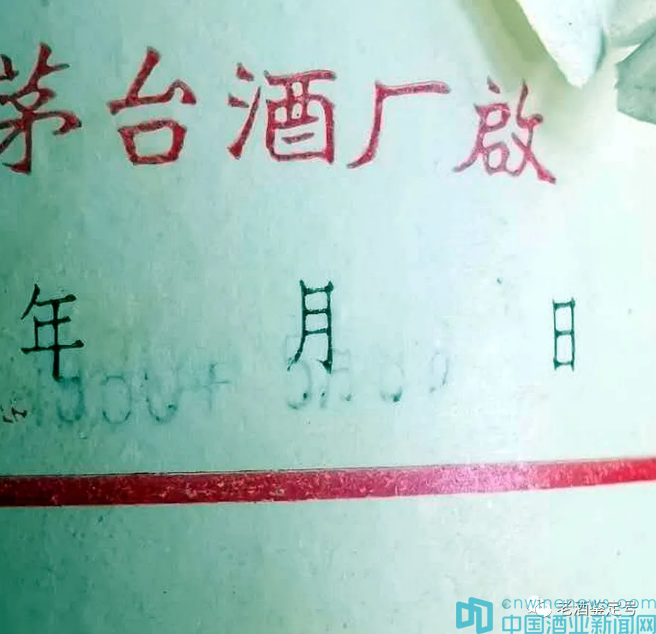 茅台酒厂啟
年 月 日
cnwinenews.com
老酒鉴定号
中国酒业新闻网